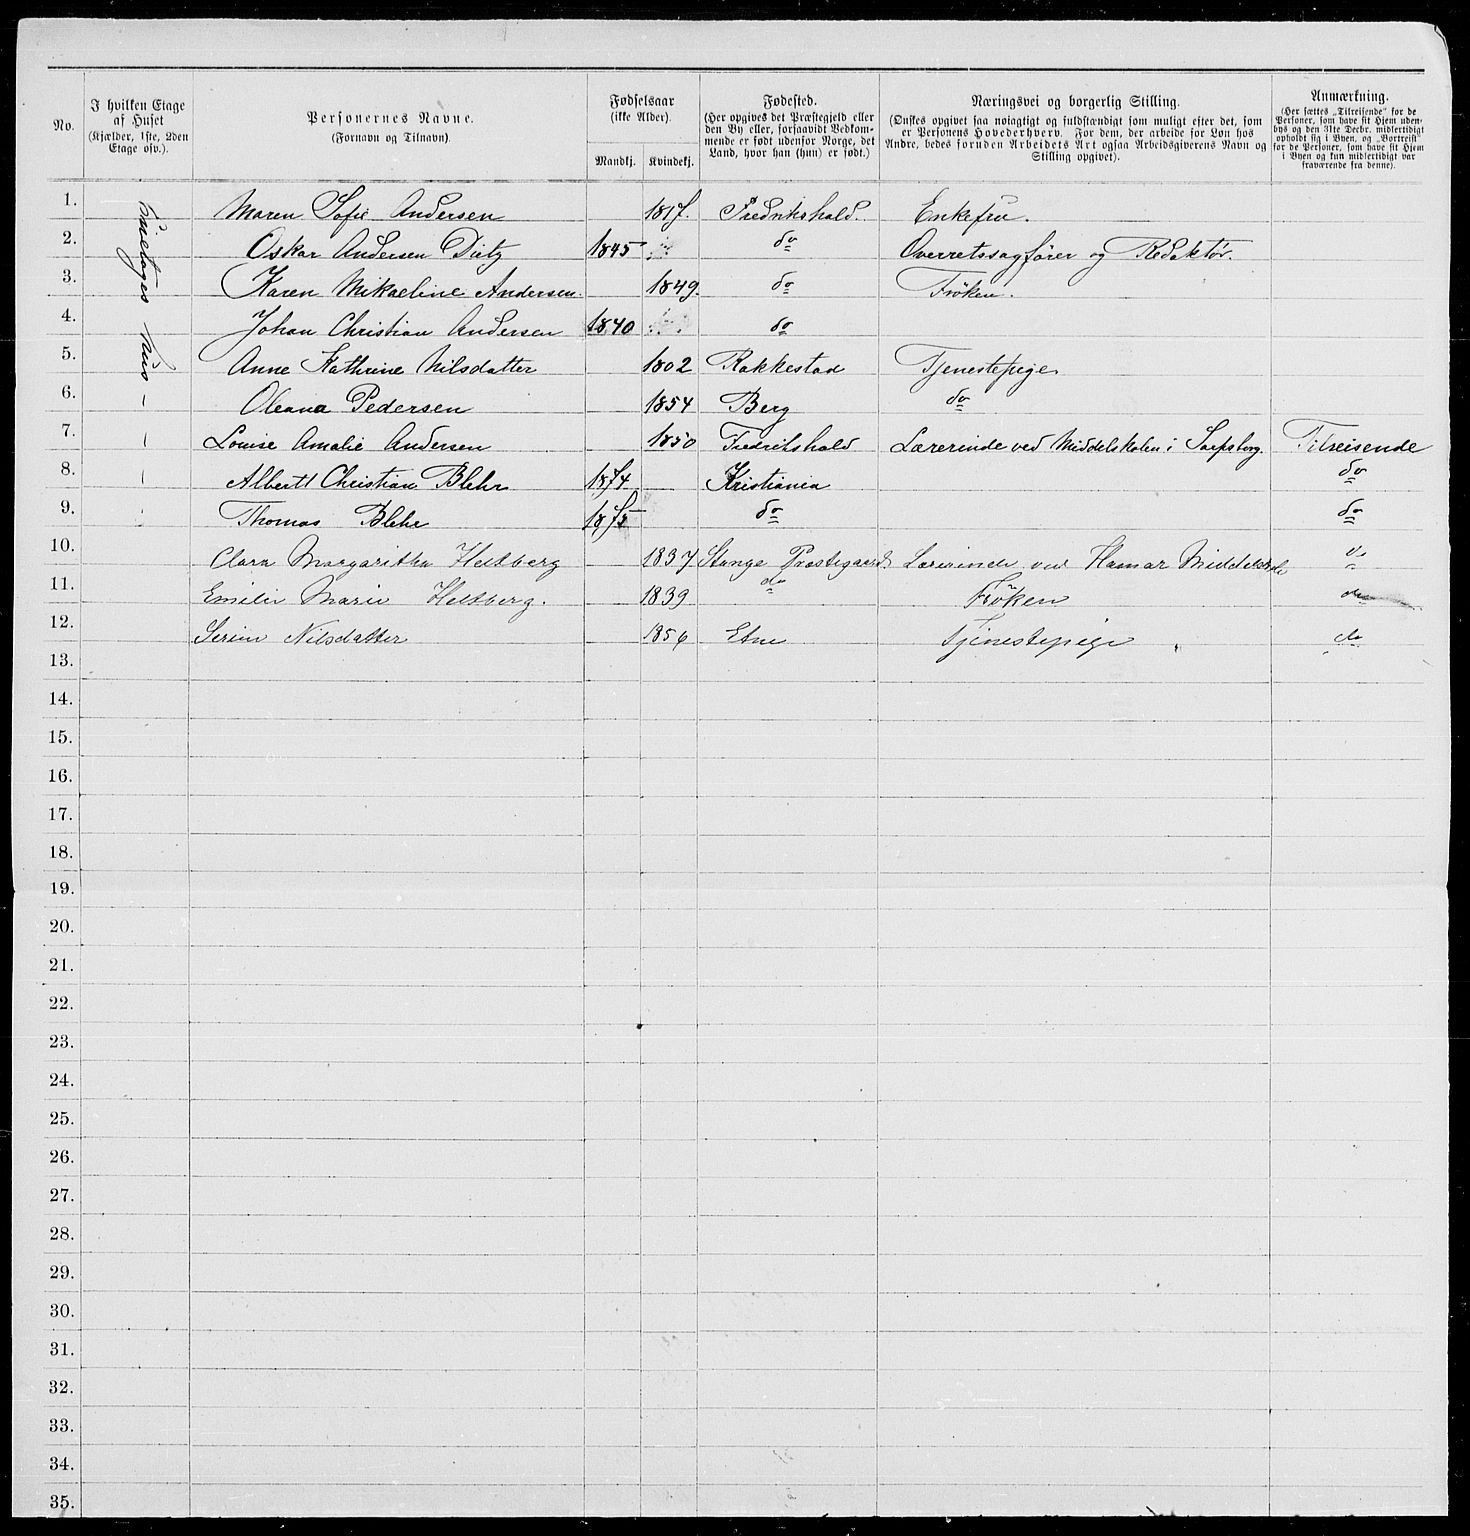 No.
I hvilken Etage af Huset (Kjælder, 1ste, 2den Etage osv.).
Personernes Navne. (Fornavn og Tilnavn).
Fødselsaar (ikke Alder). Mandkj. Kvindekj.
Fødested. (Her opgives det Præstegjeld eller den By eller, forsaavidt Vedkommende er født udenfor Norge, det Land, hvor han (hun) er født.)
Næringsvei og borgerlig Stilling. (Ønskes opgivet saa nøiagtigt og fuldstændigt som muligt efter det, som er Personens Hovederhverv. For dem, der arbeide for Løn hos Andre, bedes foruden Arbeidets Art ogsaa Arbeidsgiverens Navn og Stilling opgivet).
Anmærkning. (Her sættes „Tilreisende" for de Personer, som have sit Hjem udenbys og den 31te Decbr. midlertidigt opholdt sig i Byen, og „Bortreist" for de Personer, som have sit Hjem i Byen og kun midlertidigt var fraværende fra denne).
1. Maren Sofie Andersen 1817. Fredrikshald. Enkefru.
2. Oskar Andersen Dietz 1845 do Overretssagfører og Redaktør.
3. Karen Mikaeline Andersen. 1849. do Frøken.
4. Johan Christian Andersen 1840 do
5. Anne Kathrine Nilsdatter 1802 Rakkestad Tjenestepige.
6. Oleana Pedersen 1854 Berg do
7. Louise Amalie Andersen 1850 Fredrikshald Lærerinde ved Middelskolen i Sarpsborg. Tilreisende
8. Albert Christian Blehr 1874 Kristiania do
9. Thomas Blehr 1875 do do
10. Clara Margaritha Heltberg 1837 Stange Præstegaard Lærerinde ved Hamar Middelskole do
11. Emilie Marie Heltberg. 1839 do Frøken do
12. Serine Nilsdatter 1856 Etne Tjenestepige do
13.
14.
15.
16.
17.
18.
19.
20.
21.
22.
23.
24.
25.
26.
27.
28.
29.
30.
31.
32.
33.
34.
35.